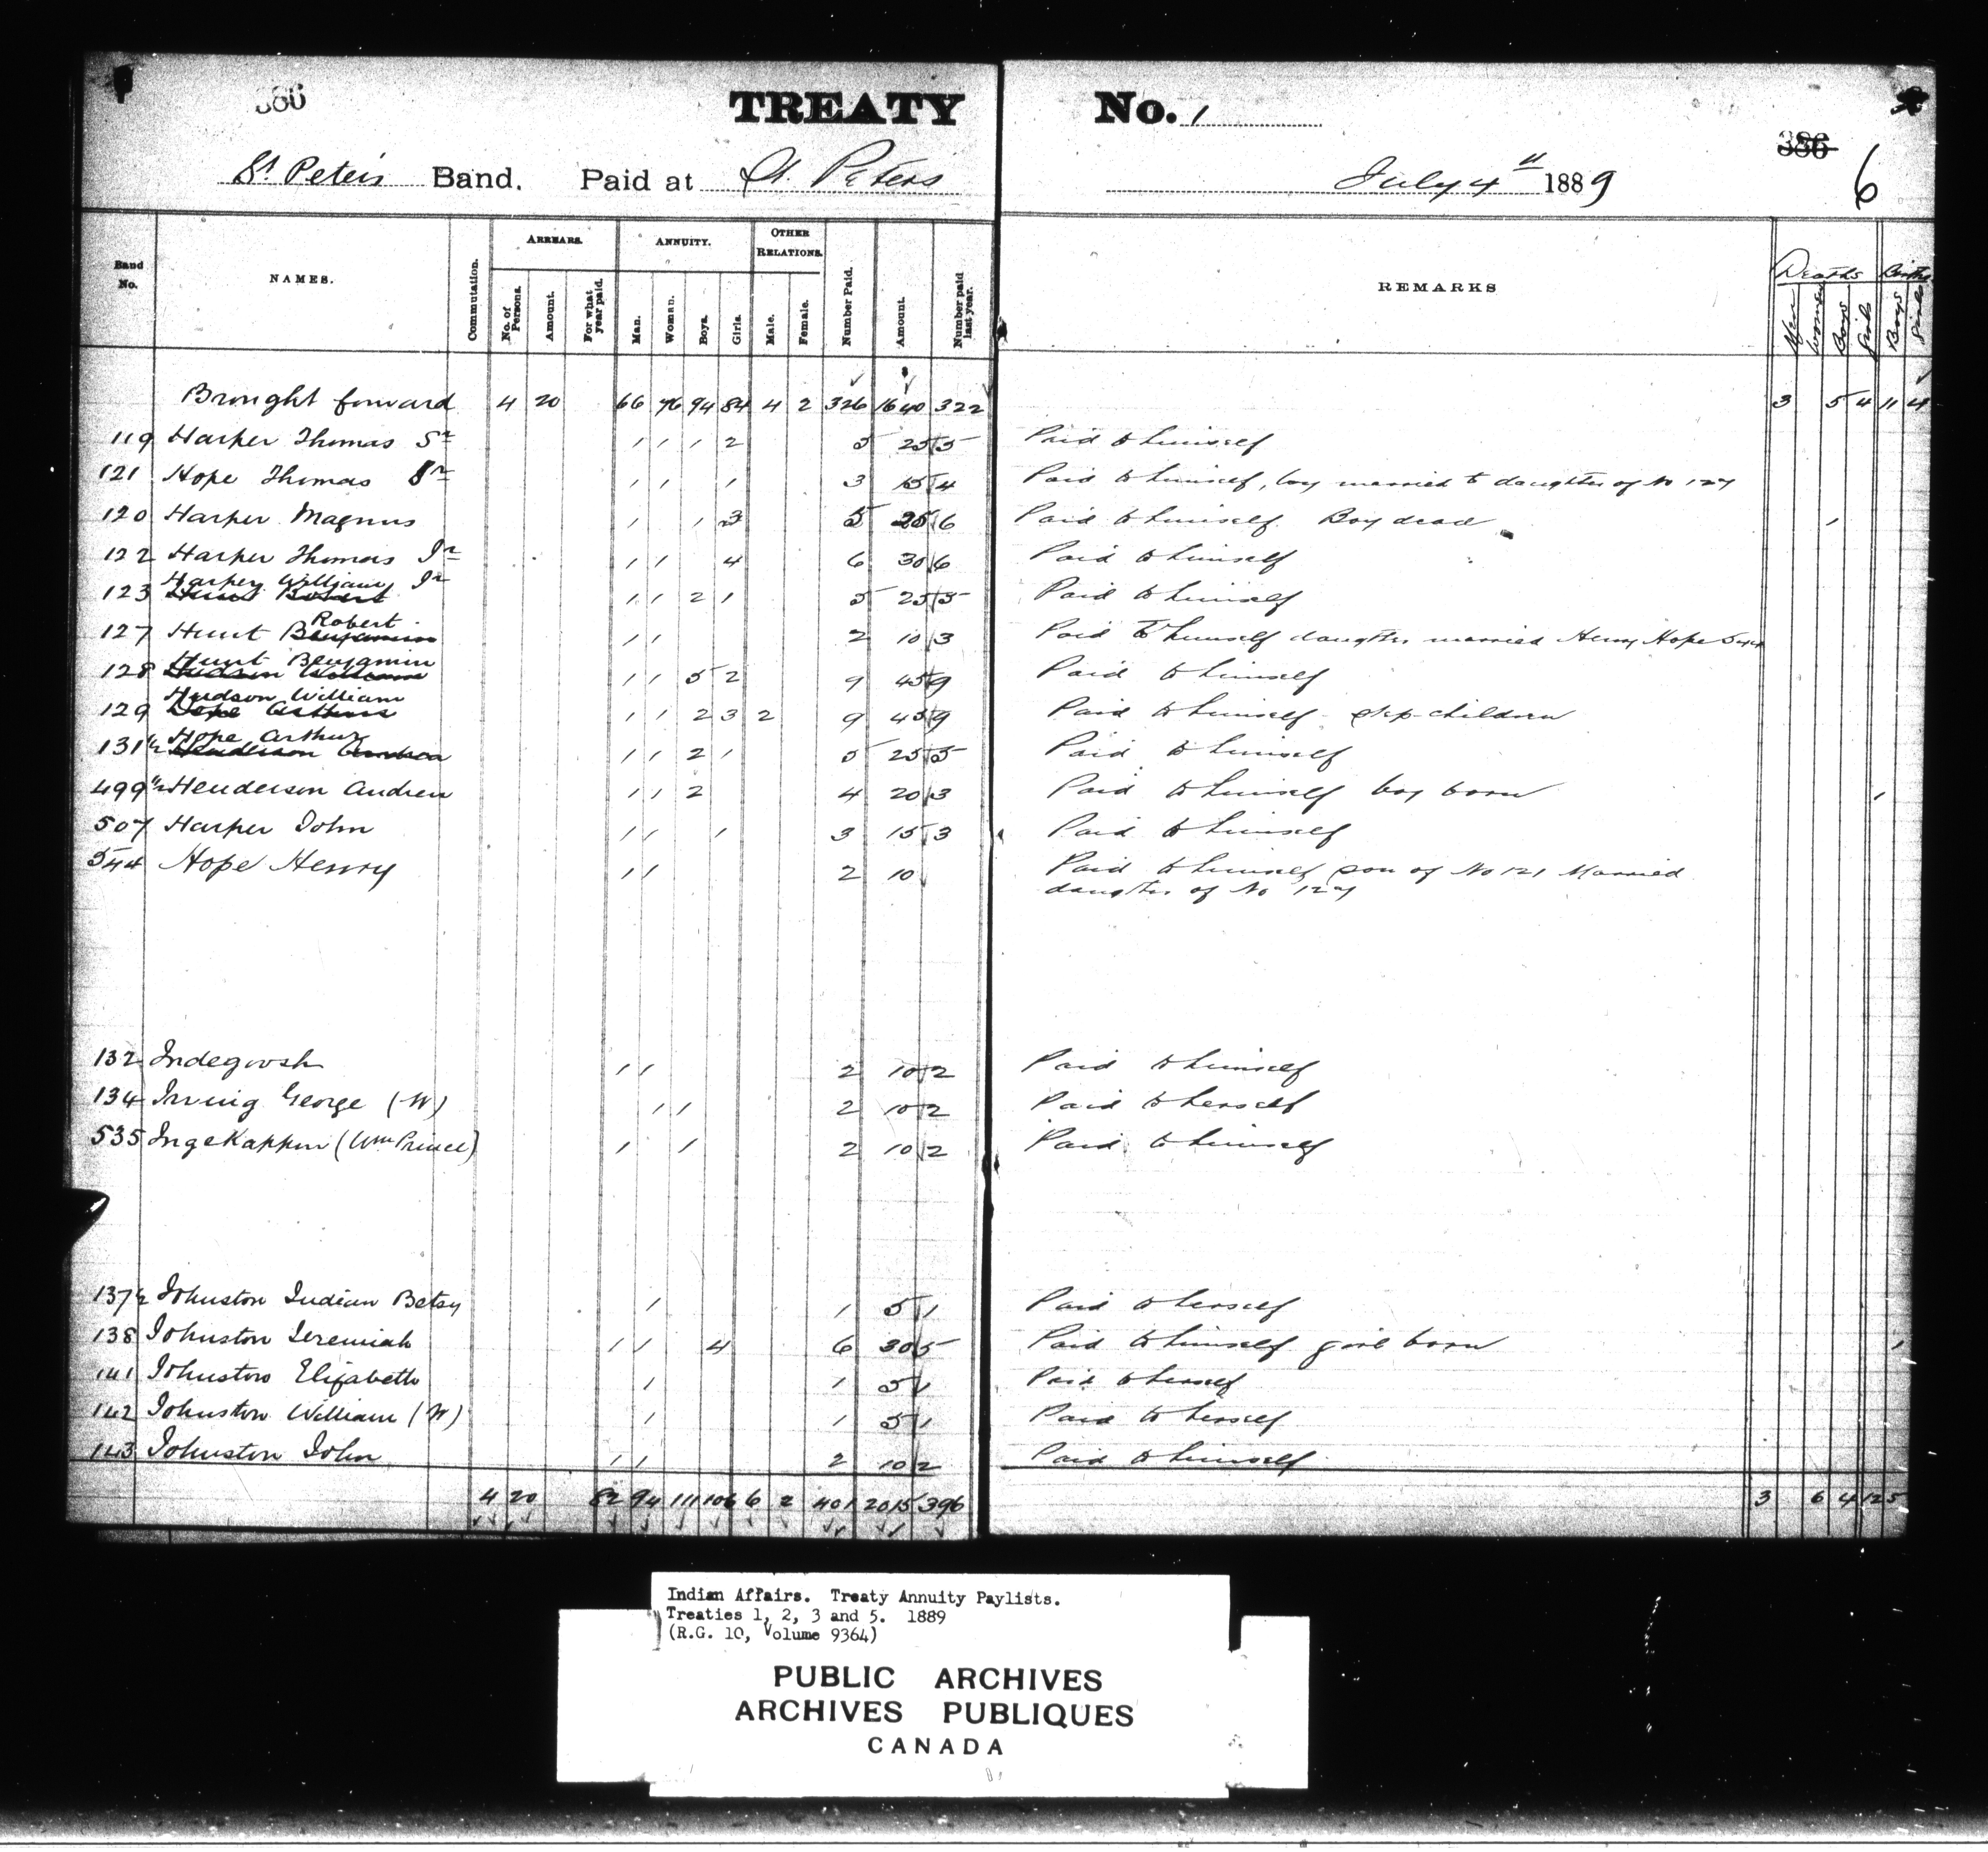 386
TREATY No. 1
386
6
St Peter's Band. Paid at St. Peters July 4th 1889
Band No. NAMES. Commutation. ARREARS. No. of Persons. Amount. For what year paid. ANNUITY. Man. Woman. Boys. Girls. OTHER RELATIONS. Male. Female. Number Paid. Amount. Number paid last year. REMARKS Deaths Men Women Boys Girls Births Boys Girls
Brought forward 4 20 66 76 94 84 4 2 326 1640 322 3 5 4 11 4
119 Harper Thomas Sr 1 1 1 2 5 25 5 Paid to himself
121 Hope Thomas Sr 1 1 1 3 15 4 Paid to himself, boy married to daughter of No 127
120 Harper Magnus 1 1 3 5 25 6 Paid to himself. Boy dead 1
122 Harper Thomas Jr 1 1 4 6 30 6 Paid to himself
Harper William Jr
123 Hunt Robert 1 1 2 1 5 25 5 Paid to himself
Robert
127 Hunt Benjamin 1 1 2 10 3 Paid to himself daughter married Henry Hope 544
Hunt Benjamin
128 Hudson William 1 1 5 2 9 45 9 Paid to himself
Hudson William
129 Hope Arthur 1 1 2 3 2 9 45 9 Paid to himself - step-children
Hope Arthur
131½ Henderson Andrew 1 1 2 1 5 25 5 Paid to himself
499½ Henderson Andrew 1 1 2 4 20 3 Paid to himself boy born 1
507 Harper John 1 1 1 3 15 3 Paid to himself
544 Hope Henry 1 1 2 10 Paid to himself son of No 121 Married
daughter of No 127
132 Indegoosh 1 1 2 10 2 Paid to himself
134 Irving George (W) 1 1 2 10 2 Paid to herself
535 Ingekappin (Wm Prince) 1 1 2 10 2 Paid to himself
137½ Johnston Indian Betsy 1 1 5 1 Paid to herself
138 Johnston Jeremiah 1 1 4 6 30 5 Paid to himself girl born 1
141 Johnston Elizabeth 1 1 5 1 Paid to herself
142 Johnston William (W) 1 1 5 1 Paid to herself
143 Johnston John 1 1 2 10 2 Paid to himself
4 20 82 94 111 106 6 2 401 2015 396 3 6 4 12 5
Indian Affairs. Treaty Annuity Paylists.
Treaties 1, 2, 3 and 5. 1889
(R.G. 10, Volume 9364)
PUBLIC ARCHIVES
ARCHIVES PUBLIQUES
CANADA